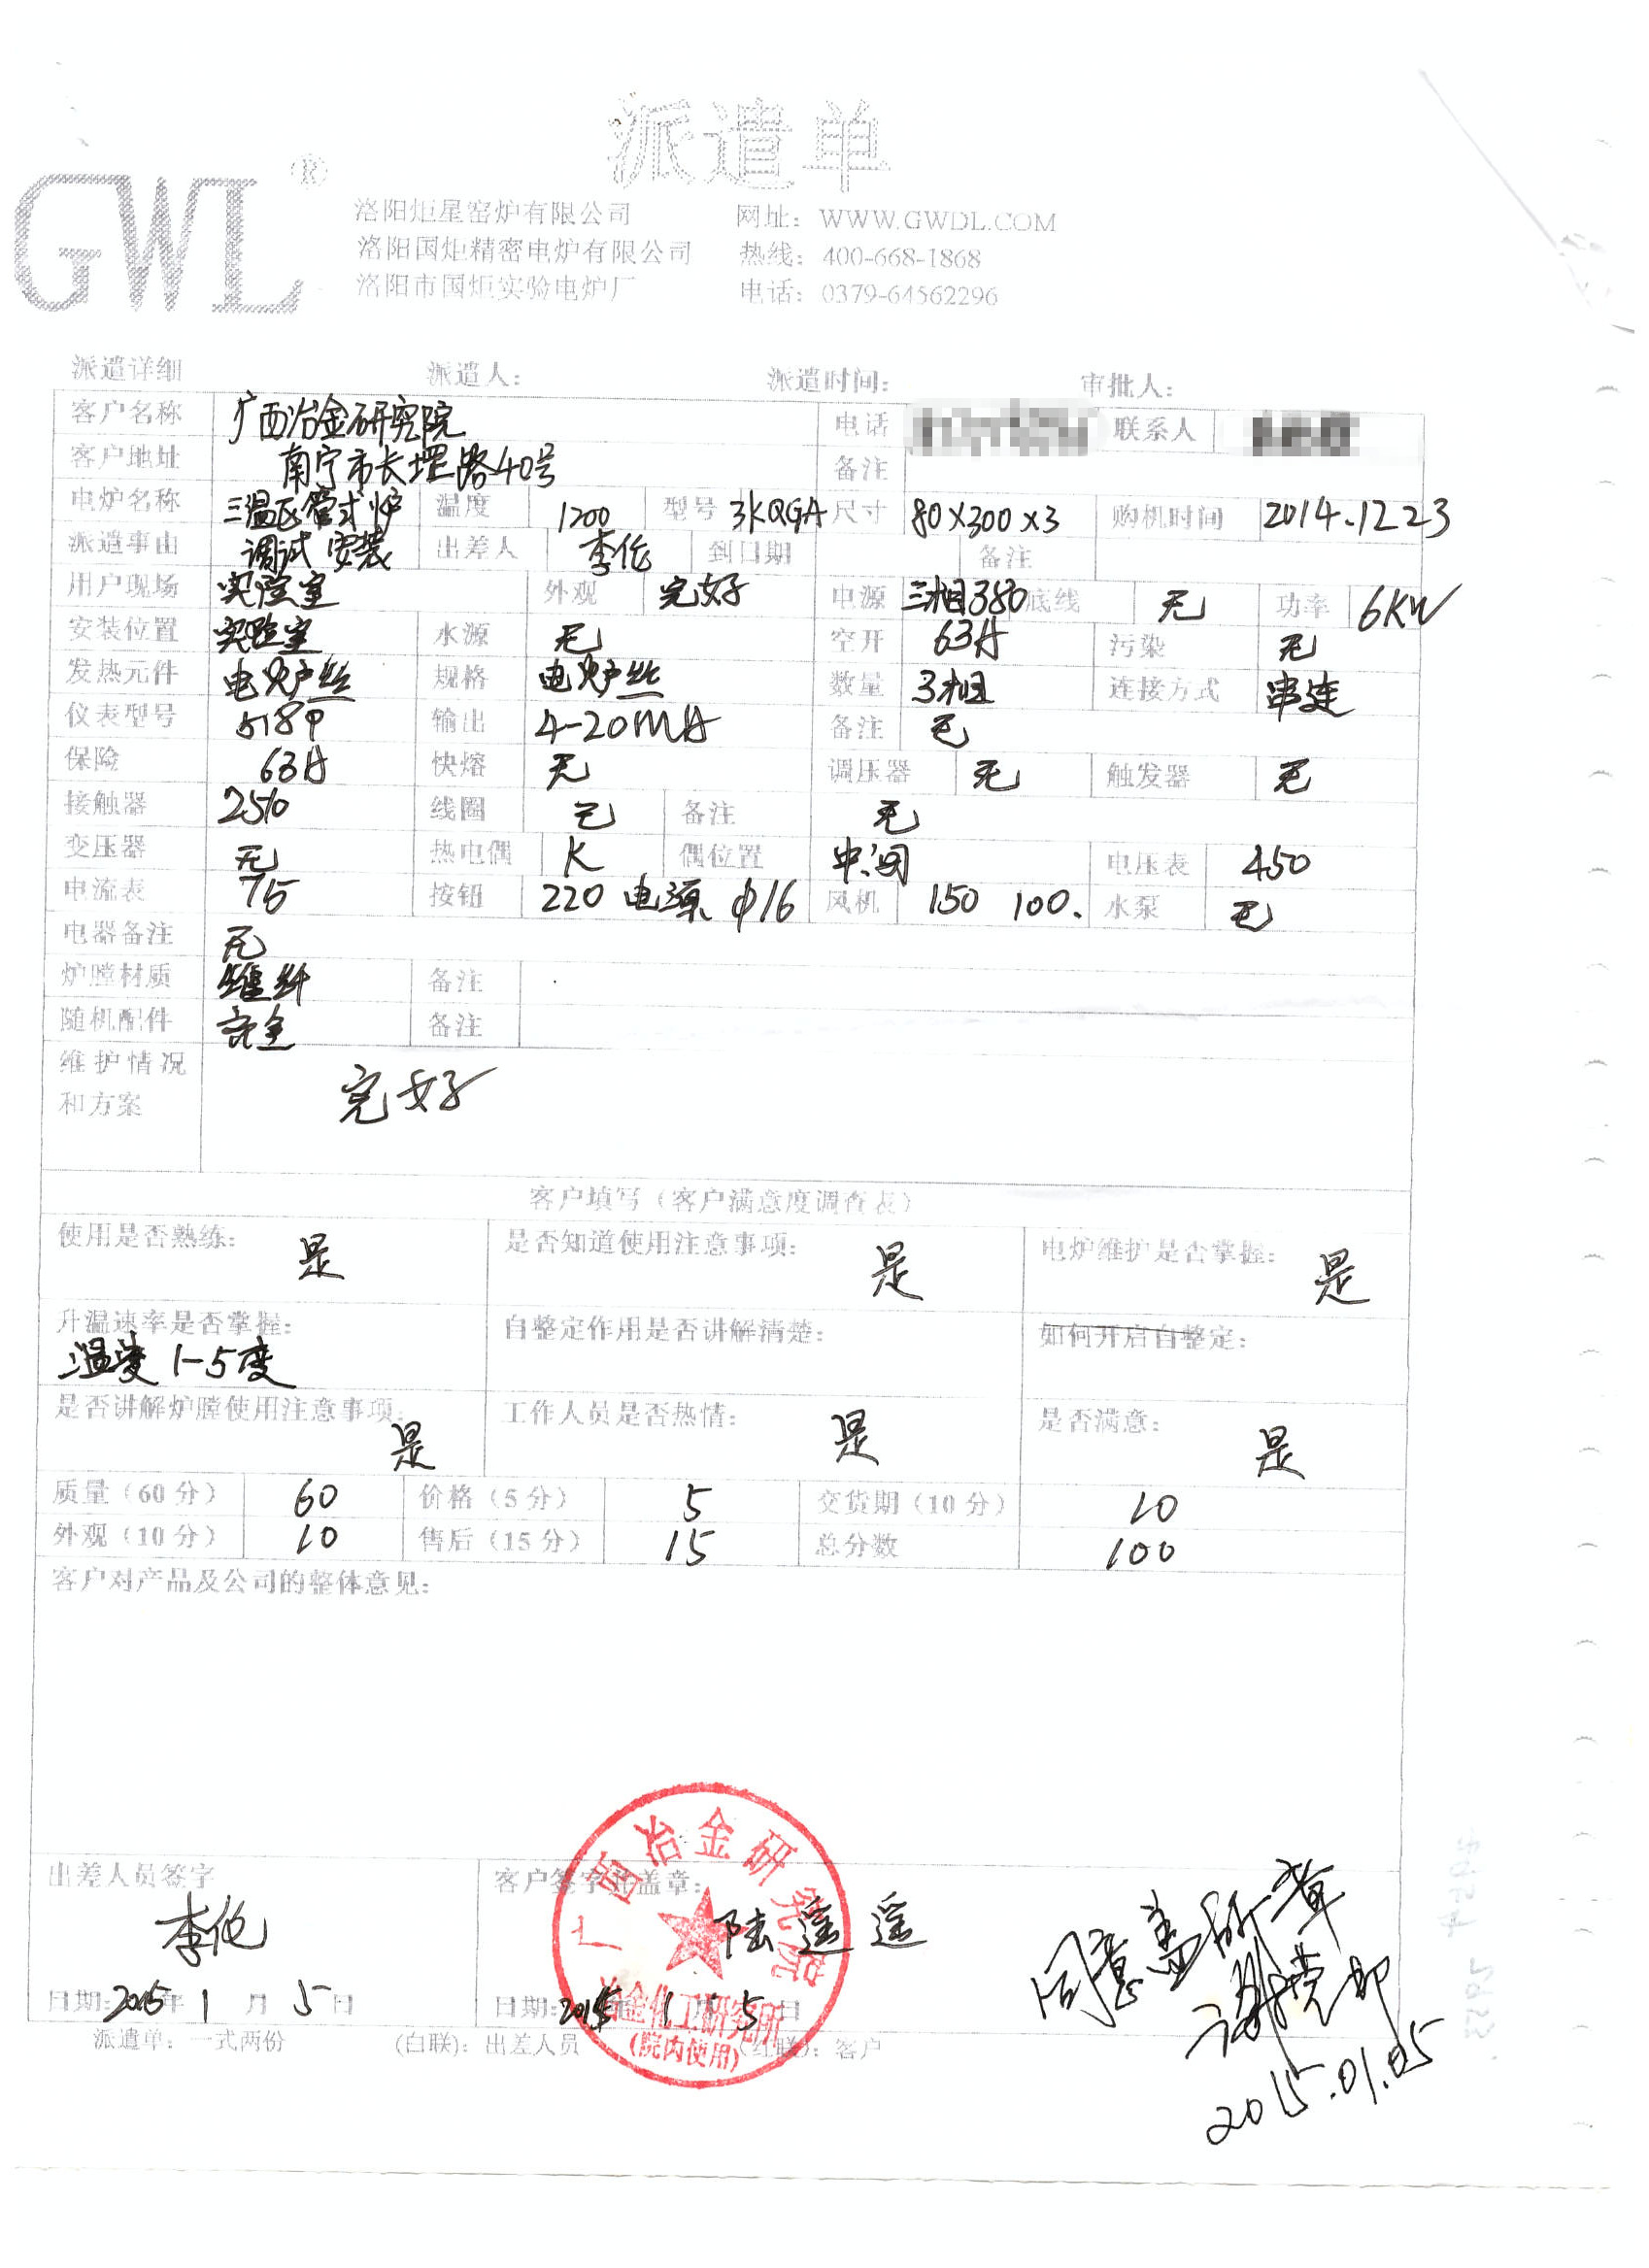 派遣单
GWL®
洛阳炬星窑炉有限公司 网址：WWW.GWDL.COM
洛阳国炬精密电炉有限公司 热线：400-668-1868
洛阳市国炬实验电炉厂 电话：0379-64562296
派遣详细 派遣人： 派遣时间： 审批人：
客户名称 广西冶金研究院 电话 联系人
客户地址 南宁市长堽路40号 备注
电炉名称 三温区管式炉 温度 1200 型号 3KQGA 尺寸 80×300×3 购机时间 2014.12 23
派遣事由 调试 安装 出差人 李伦 到日期 备注
用户现场 实验室 外观 完好 电源 三相380 底线 无 功率 6KW
安装位置 实验室 水源 无 空开 63A 污染 无
发热元件 电炉丝 规格 电炉丝 数量 3相 连接方式 串连
仪表型号 518P 输出 4-20MA 备注 无
保险 63A 快熔 无 调压器 无 触发器 无
接触器 2510 线圈 无 备注 无
变压器 无 热电偶 K 偶位置 中间 电压表 450
电流表 75 按钮 220 电源 φ16 风机 150 100. 水泵 无
电器备注 无
炉膛材质 纤 备注
随机配件 齐全 备注
维护情况
和方案 完好
客户填写（客户满意度调查表）
使用是否熟练： 是 是否知道使用注意事项： 是 电炉维护是否掌握： 是
升温速率是否掌握： 自整定作用是否讲解清楚： 如何开启自整定：
温度 1-5度
是否讲解炉膛使用注意事项： 是 工作人员是否热情： 是 是否满意： 是
质量（60分） 60 价格（5分） 5 交货期（10分） 10
外观（10分） 10 售后（15分） 15 总分数 100
客户对产品及公司的整体意见：
出差人员签字 客户签字并盖章：
李伦 陆遥遥
日期：2015年 1 月 5 日 日期：2015 1 5 日
广西冶金研究院
冶金化工研究所
（院内使用）
同意盖所章
2015.01.05
派遣单：一式两份 （白联）：出差人员 （红联）：客户